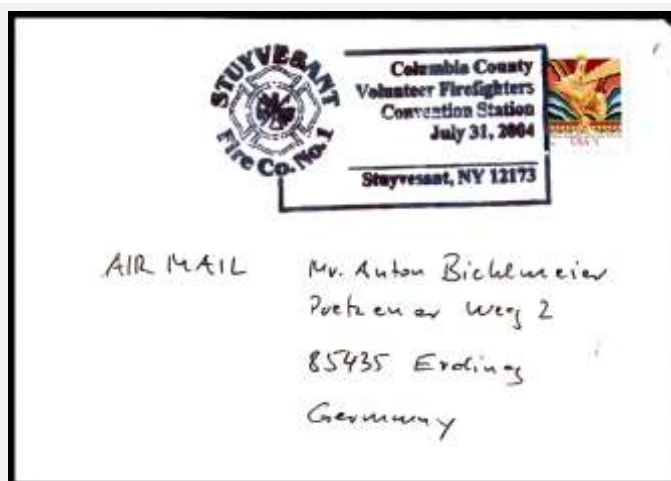 STUYVESANT
Fire Co. No. 1
Columbia County
Volunteer Firefighters
Convention Station
July 31, 2004
Stuyvesant, NY 12173
AIR MAIL
Mr. Anton Bichlmeier
Weg 2
85435 Erding
Germany